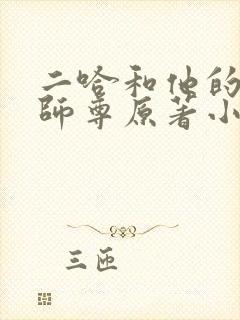 二哈和他的
師尊原著小
三匝